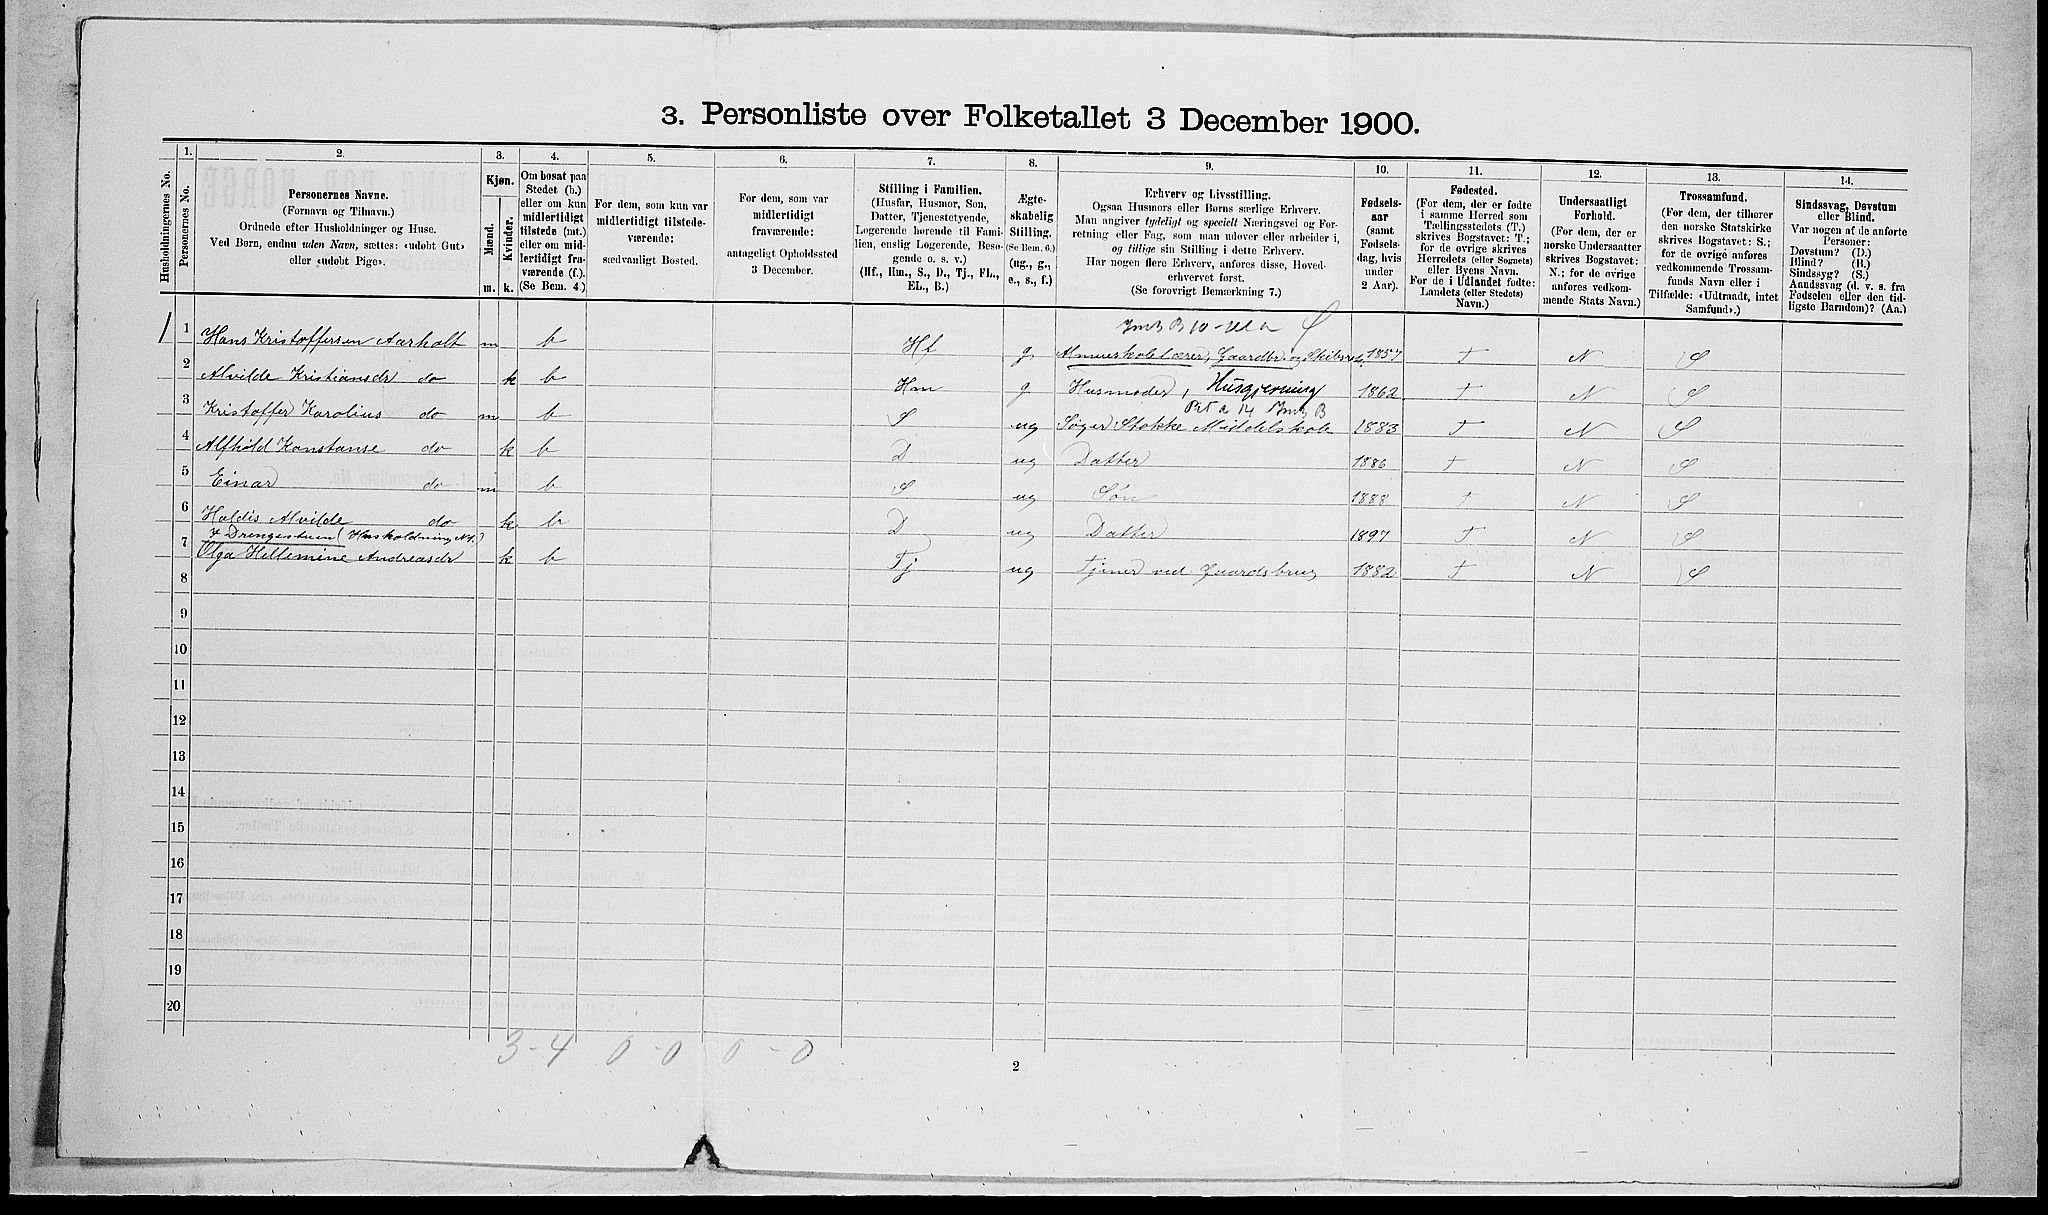 3. Personliste over Folketallet 3 December 1900.
1. 2. 3. 4. 5. 6. 7. 8. 9. 10. 11. 12. 13. 14.
Husholdningernes No.
Personernes No.
Personernes Navne.
(Fornavn og Tilnavn.)
Ordnede efter Husholdninger og Huse.
Ved Børn, endnu uden Navn, sættes: «udøbt Gut»
eller «udøbt Pige».
Kjøn.
Mænd.
Kvinder.
m. k.
Om bosat paa
Stedet (b.)
eller om kun
midlertidigt
tilstede (mt.)
eller om mid-
lertidigt fra-
værende (f.).
(Se Bem. 4.)
For dem, som kun var
midlertidigt tilstede-
værende:
sædvanligt Bosted.
For dem, som var
midlertidigt
fraværende:
antageligt Opholdssted
3 December.
Stilling i Familien.
(Husfar, Husmor, Søn,
Datter, Tjenestetyende,
Logerende hørende til Fami-
lien, enslig Logerende, Besø-
gende o. s. v.)
(Hf., Hm., S., D., Tj., FL.,
EL., B.)
Ægte-
skabelig
Stilling.
(Se Bem. 6.)
(ug., g.,
e., s., f.)
Erhverv og Livsstilling.
Ogsaa Husmors eller Børns særlige Erhverv.
Man angiver tydeligt og specielt Næringsvei og For-
retning eller Fag, som man udøver eller arbeider i,
og tillige sin Stilling i dette Erhverv.
Har nogen flere Erhverv, anføres disse, Hoved-
erhvervet først.
(Se forøvrigt Bemærkning 7.)
Fødsels-
aar
(samt
Fødsels-
dag, hvis
under
2 Aar).
Fødested.
(For dem, der er fødte
i samme Herred som
Tællingsstedets (T.)
skrives Bogstavet: T.;
for de øvrige skrives
Herredets (eller Sognets)
eller Byens Navn.
For de i Udlandet fødte:
Landets (eller Stedets)
Navn.)
Undersaatligt
Forhold.
(For dem, der er
norske Undersaatter
skrives Bogstavet:
N.; for de øvrige
anføres vedkom-
mende Stats Navn.)
Trossamfund.
(For dem, der tilhører
den norske Statskirke
skrives Bogstavet: S.;
for de øvrige anføres
vedkommende Trossam-
funds Navn eller i
Tilfælde: «Udtraadt, intet
Samfund».)
Sindssvag, Døvstum
eller Blind.
Var nogen af de anførte
Personer:
Døvstum? (D.)
Blind? (B.)
Sindssyg? (S.)
Aandssvag (d. v. s. fra
Fødselen eller den tid-
ligste Barndom)? (Aa.)
1 1 Hans Kristoffersen Aarholt m b Hf g Almueskolelærer, Gaardbr. og 1857 T N S
2 Alvilde Kristiansdr do k b Hm g Husmoder, Husgjerning 1862 T N S
3 Kristoffer Karolius do m b S ug Søger Stokke Middelskole 1883 T N S
4 Alfhold Konstanse do k b D ug Datter 1886 T N S
5 Einar do m b S ug Søn 1888 T N S
6 Haldis Alvilde do k b D ug Datter 1897 T N S
I Drengestuen (Husholdning No 1.)
7 Olga Hellemine Andreasdr k b Tj ug Tjener ved Gaardsbrug 1882 T N S
8
9
10
11
12
13
14
15
16
17
18
19
20
3-4 0-0 0-0
2